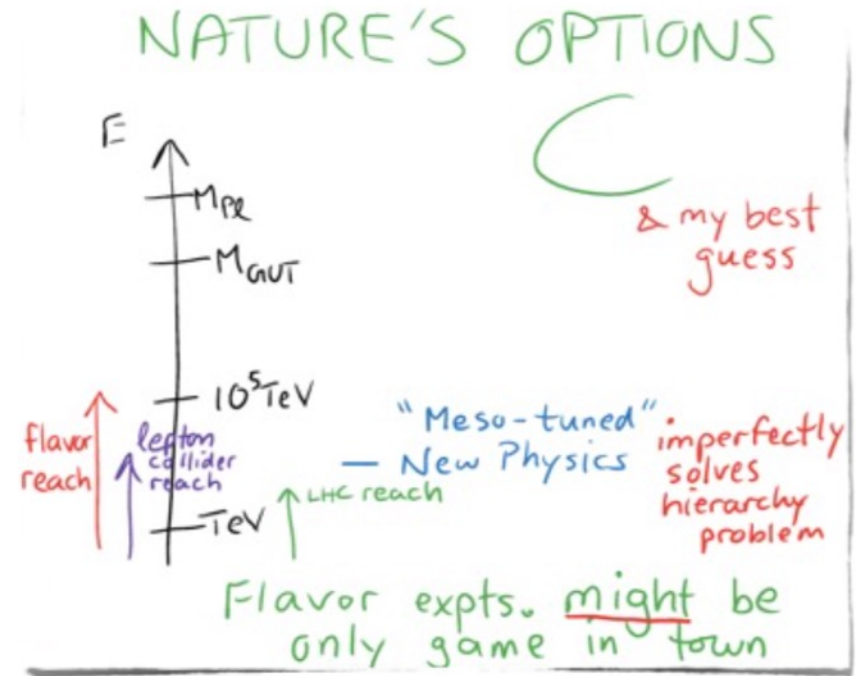 NATURE'S OPTIONS
E
C
M_Pl
& my best
guess
M_GUT
10^5 TeV
flavor
reach
lepton
collider
reach
"Meso-tuned"
— New Physics
imperfectly
solves
hierarchy
problem
LHC reach
TeV
Flavor expts. might be
only game in town